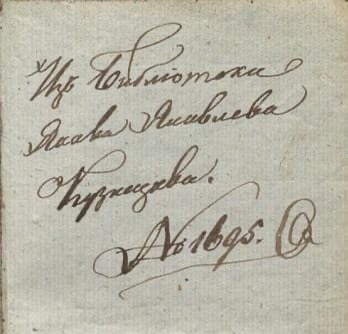 Изъ Библіотеки
Якова Яковлева
Кузнецова.
№ 1695.